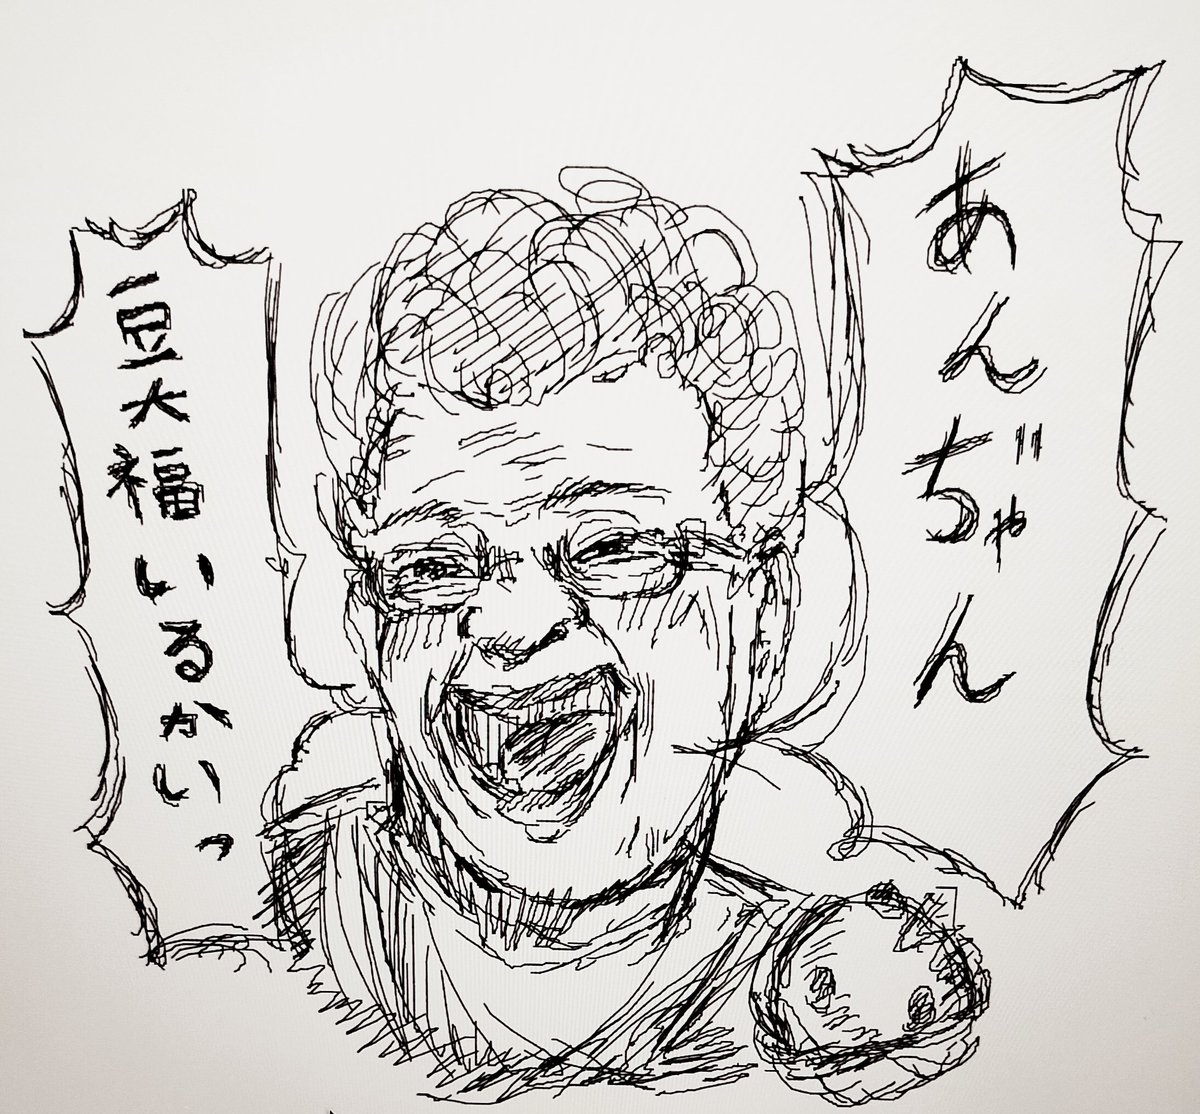 あんぢゃん
豆大福いるかいっ